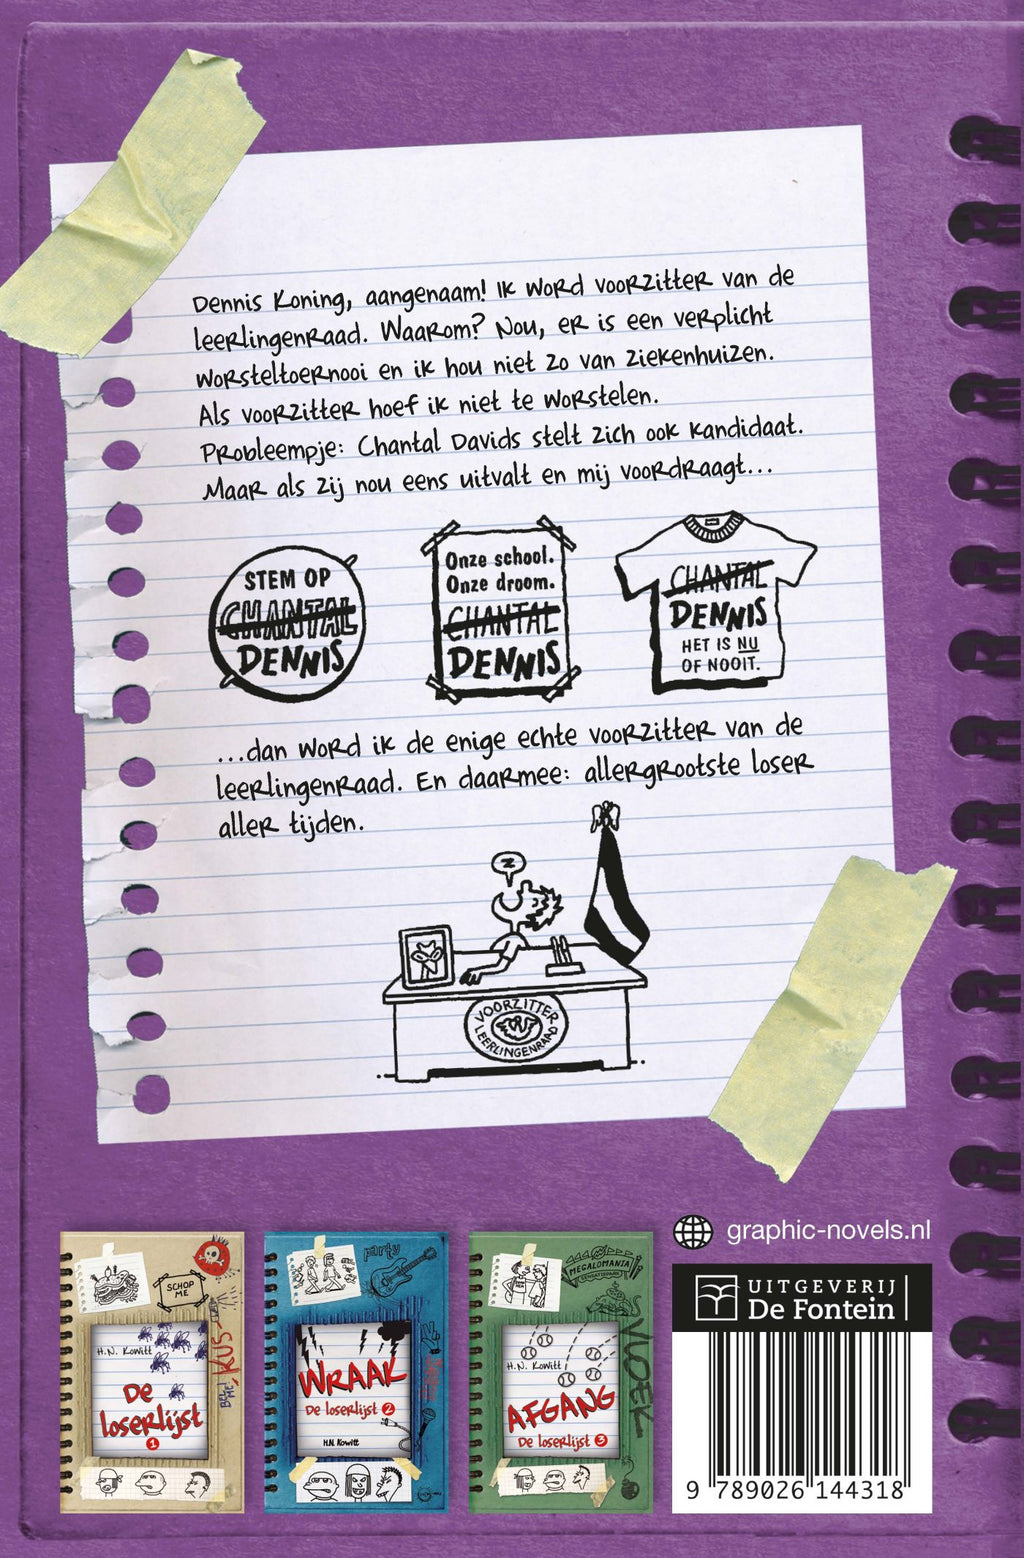 Dennis Koning, aangenaam! Ik word voorzitter van de
leerlingenraad. Waarom? Nou, er is een verplicht
worsteltoernooi en ik hou niet zo van ziekenhuizen.
Als voorzitter hoef ik niet te worstelen.
Probleempje: Chantal Davids stelt zich ook kandidaat.
Maar als zij nou eens uitvalt en mij voordraagt...
STEM OP
CHANTAL
DENNIS
Onze school.
Onze droom.
CHANTAL
DENNIS
CHANTAL
DENNIS
HET IS NU
OF NOOIT.
...dan word ik de enige echte voorzitter van de
leerlingenraad. En daarmee: allergrootste loser
aller tijden.
Z
VOORZITTER
LEERLINGENRAAD
graphic-novels.nl
UITGEVERIJ
De Fontein
9 789026 144318
SCHOP
ME
H.N. Kowitt
De
loserlijst
1
KUS
BEL
ME!
party
WRAAK
De loserlijst 2
H.N. Kowitt
MEGALOMANIA
H.N. Kowitt
AFGANG
De loserlijst 3
VLOEK